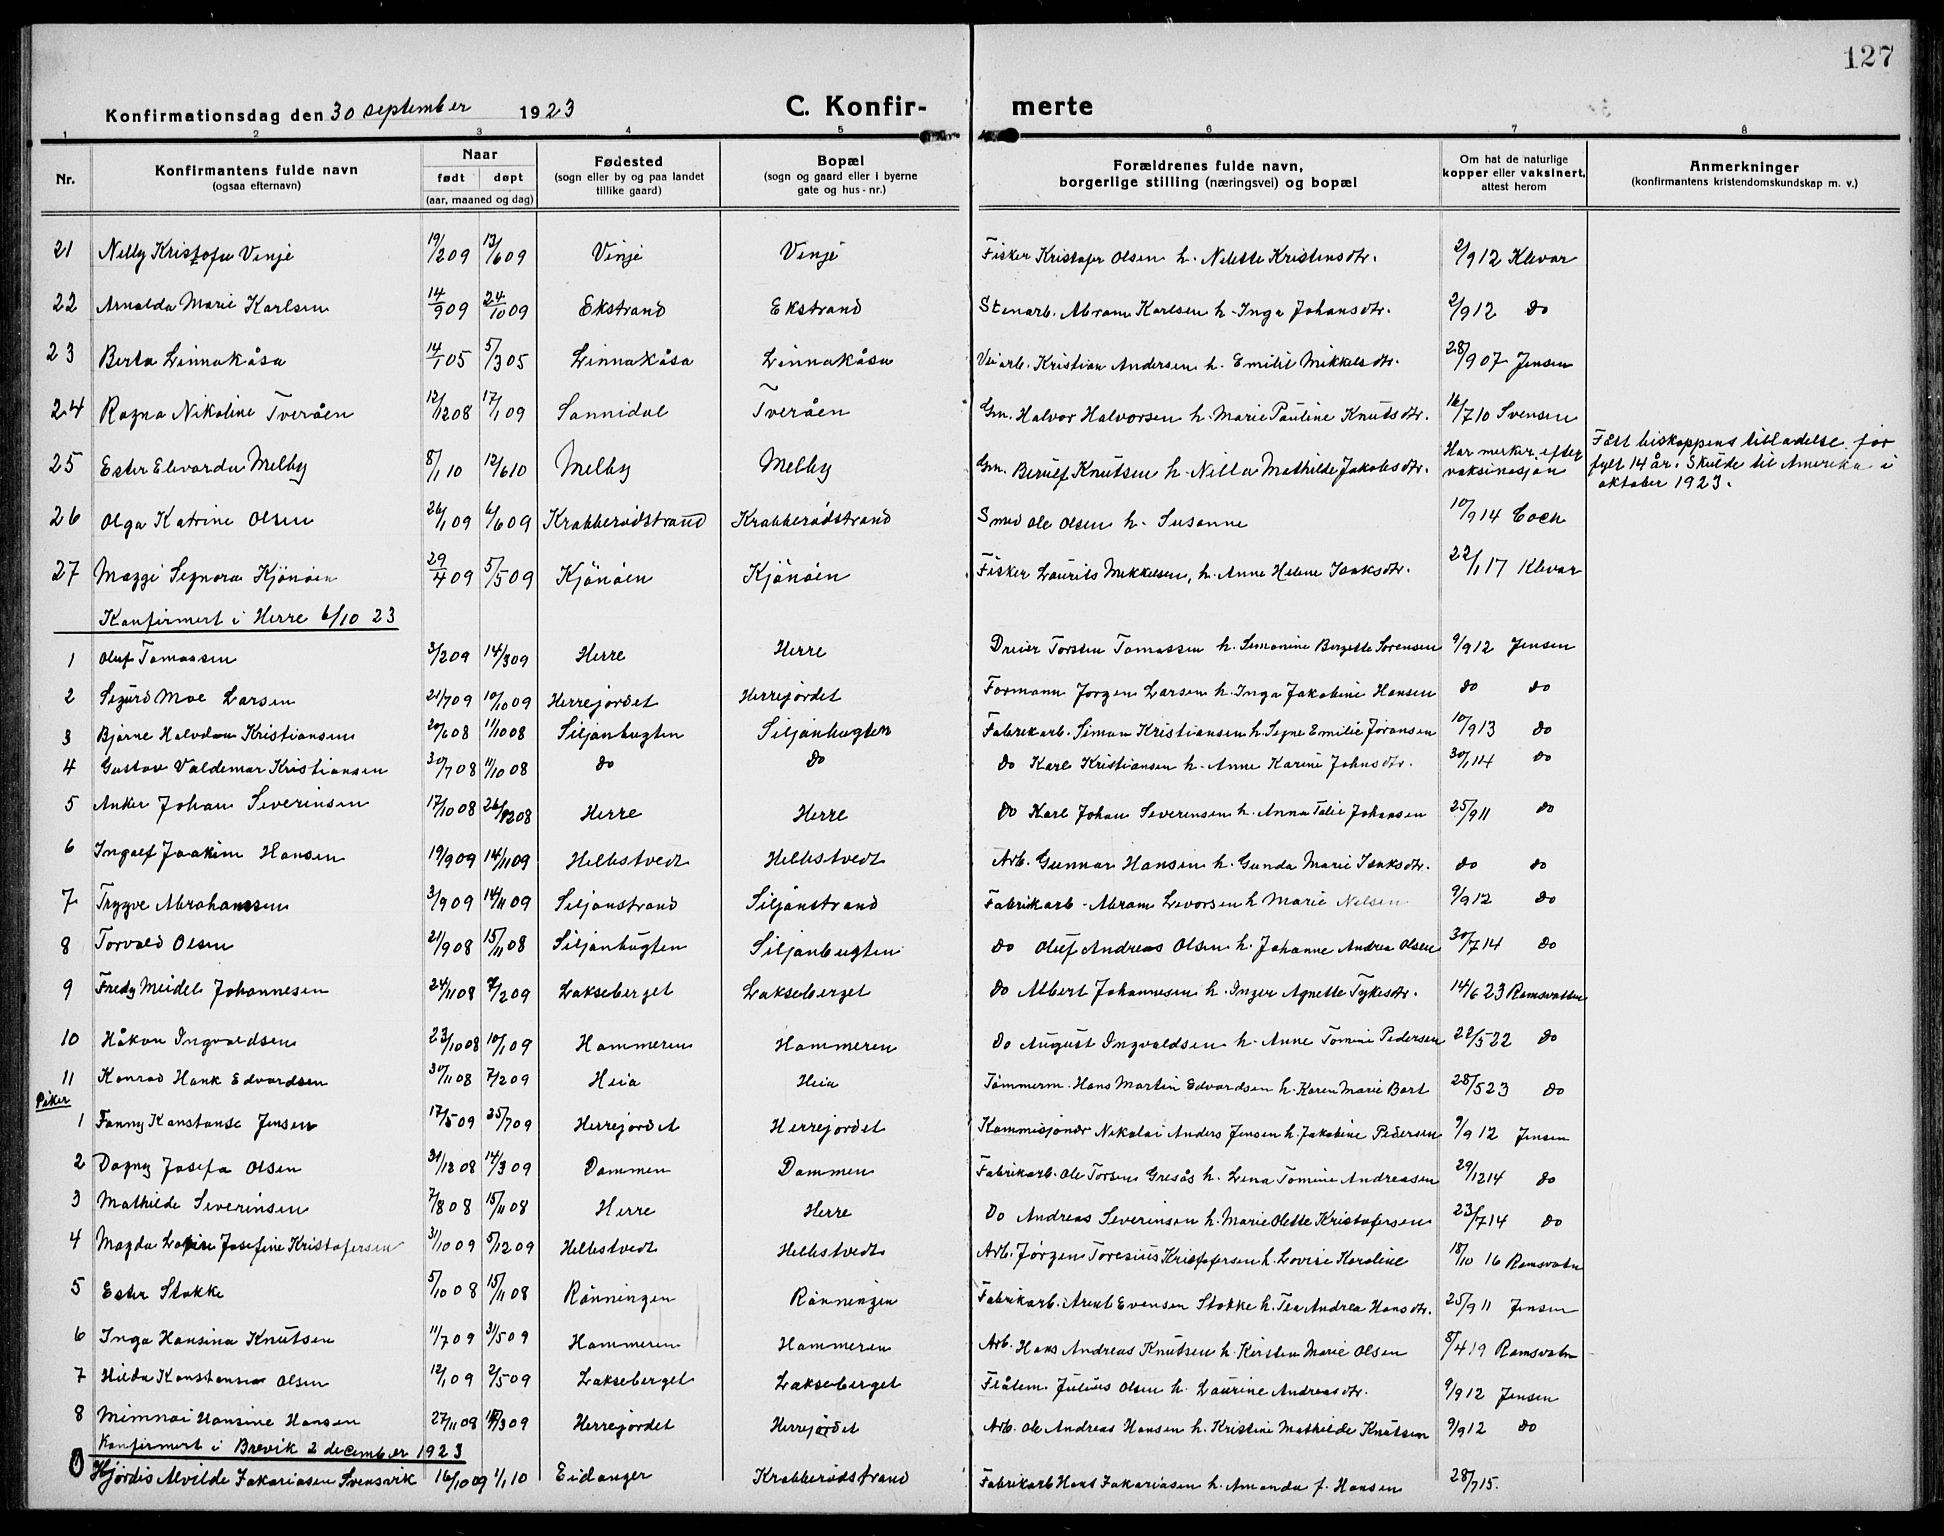 127
Konfirmationsdag den 30 september 1923 C. Konfir- merte
1 2 3 4 5 6 7 8
Nr. Konfirmantens fulde navn (ogsaa efternavn) Naar født døpt (aar, maaned og dag) Fødested (sogn eller by og paa landet tillike gaard) Bopæl (sogn og gaard eller i byerne gate og hus-nr.) Forældrenes fulde navn, borgerlige stilling (næringsvei) og bopæl Om hat de naturlige kopper eller vaksinert, attest herom Anmerkninger (konfirmantens kristendomskundskap m. v.)
21 Nelly Kristofa Vinje 19/2 09 13/6 09 Vinje Vinje Fisker Kristofer Olsen h. Nilette Kristensdtr. 2/9 12 Klevar
22 Arnalda Marie Karlsen 14/9 09 24/10 09 Ekstrand Ekstrand Stenarb. Abram Karlsen h. Inga Johansdtr. 2/9 12 do
23 Berta Linnakåsa 14/1 05 5/3 05 Linnakåsa Linnakåsa Veiarb. Kristian Andersen h. Emilie Mikkelsdtr. 28/9 07 Jensen
24 Ragna Nikoline Tveråen 12/12 08 17/1 09 Sannidal Tveråen Gm. Halvor Halvorsen h. Marie Pauline Knutsdtr. 16/7 10 Svensen
25 Ester Elvarda Melby 8/1 10 12/6 10 Melby Melby Gm. Berulf Knutsen h. Nilla Mathilde Jakobsdtr. Har merker efter vaksinasjon Fått biskoppens tilladelse før fylt 14 år. Skulde til Amerika i oktober 1923.
26 Olga Katrine Olsen 26/1 09 6/6 09 Krabberødstrand Krabberødstrand Smed Ole Olsen h. Susanne 10/9 14 Coch
27 Maggi Signora Kjönöen 29/4 09 5/5 09 Kjönöen Kjönöen Fisker Laurits Mikkelsen, h. Anne Helene Isaksdtr. 22/1 17 Klevar
Konfirmert i Herre 6/10 23
1 Oluf Tomassen 3/2 09 14/3 09 Herre Herre Dreier Torsten Tomassen h. Simonine Bergette Sørensen 9/9 12 Jensen
2 Sigurd Moe Larsen 21/7 09 10/10 09 Herrejordet Herrejordet Formann Jørgen Larsen h. Inga Jakobine Hansen do do
3 Bjarne Halvdan Kristiansen 20/6 08 11/10 08 Siljanbugten Siljanbugten Fabrikarb. Simon Kristiansen h. Signe Emilie Joransen 10/9 13 do
4 Gustav Valdemar Kristiansen 30/7 08 11/10 08 do do do Karl Kristiansen h. Anne Karine Johnsdtr. 30/1 14 do
5 Anker Johan Severinsen 17/10 08 26/12 08 Herre Herre do Karl Johan Severinsen h. Anna Talie Johansen 25/9 11 do
6 Ingolf Joakim Hansen 19/9 09 14/11 09 Hellestvedt Hellestvedt Arb. Gunnar Hansen h. Gunda Marie Isaksdtr. do do
7 Trygve Abrahamsen 3/9 09 14/11 09 Siljanstrand Siljanstrand Fabrikarb. Abram Levorsen h. Marie Nilsen 9/9 12 do
8 Torvald Olsen 21/9 08 15/11 08 Siljanbugten Siljanbugten do Oluf Andreas Olsen h. Johanne Andrea Olsen 30/7 14 do
9 Fredy Meidel Johannesen 24/11 08 7/2 09 Lakseberget Lakseberget do Albert Johannesen h. Inger Agnette Tykesdtr. 14/6 23 Ramsvatten
10 Håkon Ingvaldsen 23/10 08 10/1 09 Hammeren Hammeren do August Ingvaldsen h. Anne Tomine Pedersen 22/5 22 do
11 Konrad Hauk Edvardsen 30/11 08 7/2 09 Heia Heia Tømmerm. Hans Martin Edvardsen h. Karen Marie Bart 28/5 23 do
Piker
1 Fanny Konstanse Jensen 17/5 09 25/7 09 Herrejordet Herrejordet Kommisjonær Nikolai Anders Jensen h. Jakobine Pedersen 9/9 12 Jensen
2 Dagny Josefa Olsen 31/12 08 14/3 09 Dammen Dammen Fabrikarb. Ole Torsen Gresås h. Lena Tomine Andreasen 29/12 14 do
3 Mathilde Severinsen 7/8 08 15/11 08 Herre Herre Do Andreas Severinsen h. Marie Olette Kristofersen 23/7 14 do
4 Magda Josefine Kristofersen 31/10 09 5/12 09 Hellestvedt Hellestvedt Arb. Jørgen Toresius Kristofersen h. Lovise Karoline 18/10 16 Ramsvatn
5 Ester Stokke 5/10 08 15/11 08 Rönningen Rönningen Fabrikarb. Arent Evensen Stokke h. Tea Andrea Hansdtr. 25/9 11 Jensen
6 Inga Hansina Knutsen 11/7 09 31/5 09 Hammeren Hammeren Arb. Hans Andreas Knutsen h. Kirsten Marie Olsen 8/4 19 Ramsvatn
7 Hilda Konstanse Olsen 12/1 09 2/5 09 Lakseberget Lakseberget Flåtem. Julius Olsen h. Laurine Andreasdtr. 9/9 12 Jensen
8 Mimmi Hansine Hansen 27/11 08 14/3 09 Herrejordet Herrejordet Arb. Ole Andreas Hansen h. Kristine Mathilde Knutsen 9/9 12 do
Konfirmert i Brevik 2 december 1923
Hjördis Alvilde Zakariasen Svensvik 16/10 09 1/1 10 Eidanger Krabberødstrand Fabrikarb Hans Zakariasen h. Amanda f. Hansen 28/7 15.